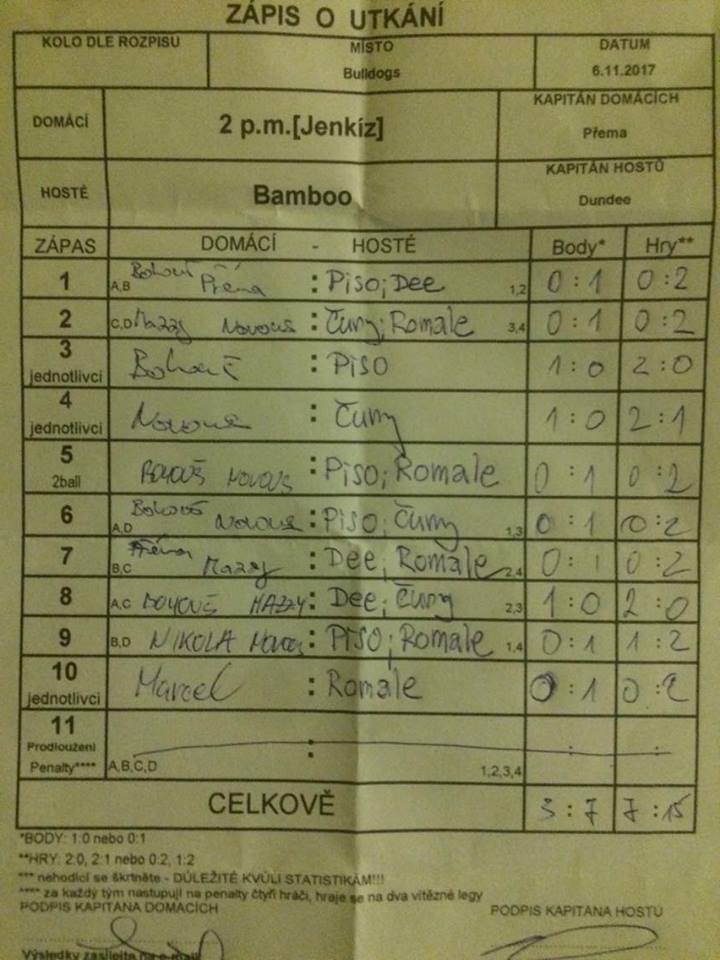 ZÁPIS O UTKÁNÍ
KOLO DLE ROZPISU
MÍSTO
Bulldogs
DATUM
6.11.2017
DOMÁCÍ
2 p.m.[Jenkíz]
KAPITÁN DOMÁCÍCH
Přema
HOSTÉ
Bamboo
KAPITÁN HOSTŮ
Dundee
ZÁPAS DOMÁCÍ - HOSTÉ Body* Hry**
1 A,B Přéma : Piso; Dee 1,2 0:1 0:2
2 C,D Mazzy : Čuny; Romale 3,4 0:1 0:2
3 jednotlivci : Piso 1:0 2:0
4 jednotlivci : Čuny 1:0 2:1
5 2ball : Piso; Romale 0:1 0:2
6 A,D : Piso; Čuny 1,3 0:1 0:2
7 B,C Mazzy : Dee; Romale 2,4 0:1 0:2
8 A,C MAZZY : Dee; Čuny 2,3 1:0 2:0
9 B,D NIKOLA : Piso; Romale 1,4 0:1 1:2
10 jednotlivci Marcel : Romale 0:1 0:2
11 Prodloužení : : :
Penalty**** A,B,C,D 1,2,3,4
CELKOVĚ 3:7 7:15
*BODY: 1:0 nebo 0:1
**HRY: 2:0, 2:1 nebo 0:2, 1:2
*** nehodící se škrtněte - DŮLEŽITÉ KVŮLI STATISTIKÁM!!!
**** za každý tým nastupují na penalty čtyři hráči, hraje se na dva vítězné legy
PODPIS KAPITÁNA DOMÁCÍCH
PODPIS KAPITÁNA HOSTŮ
Výsledky zasílejte na e-mail